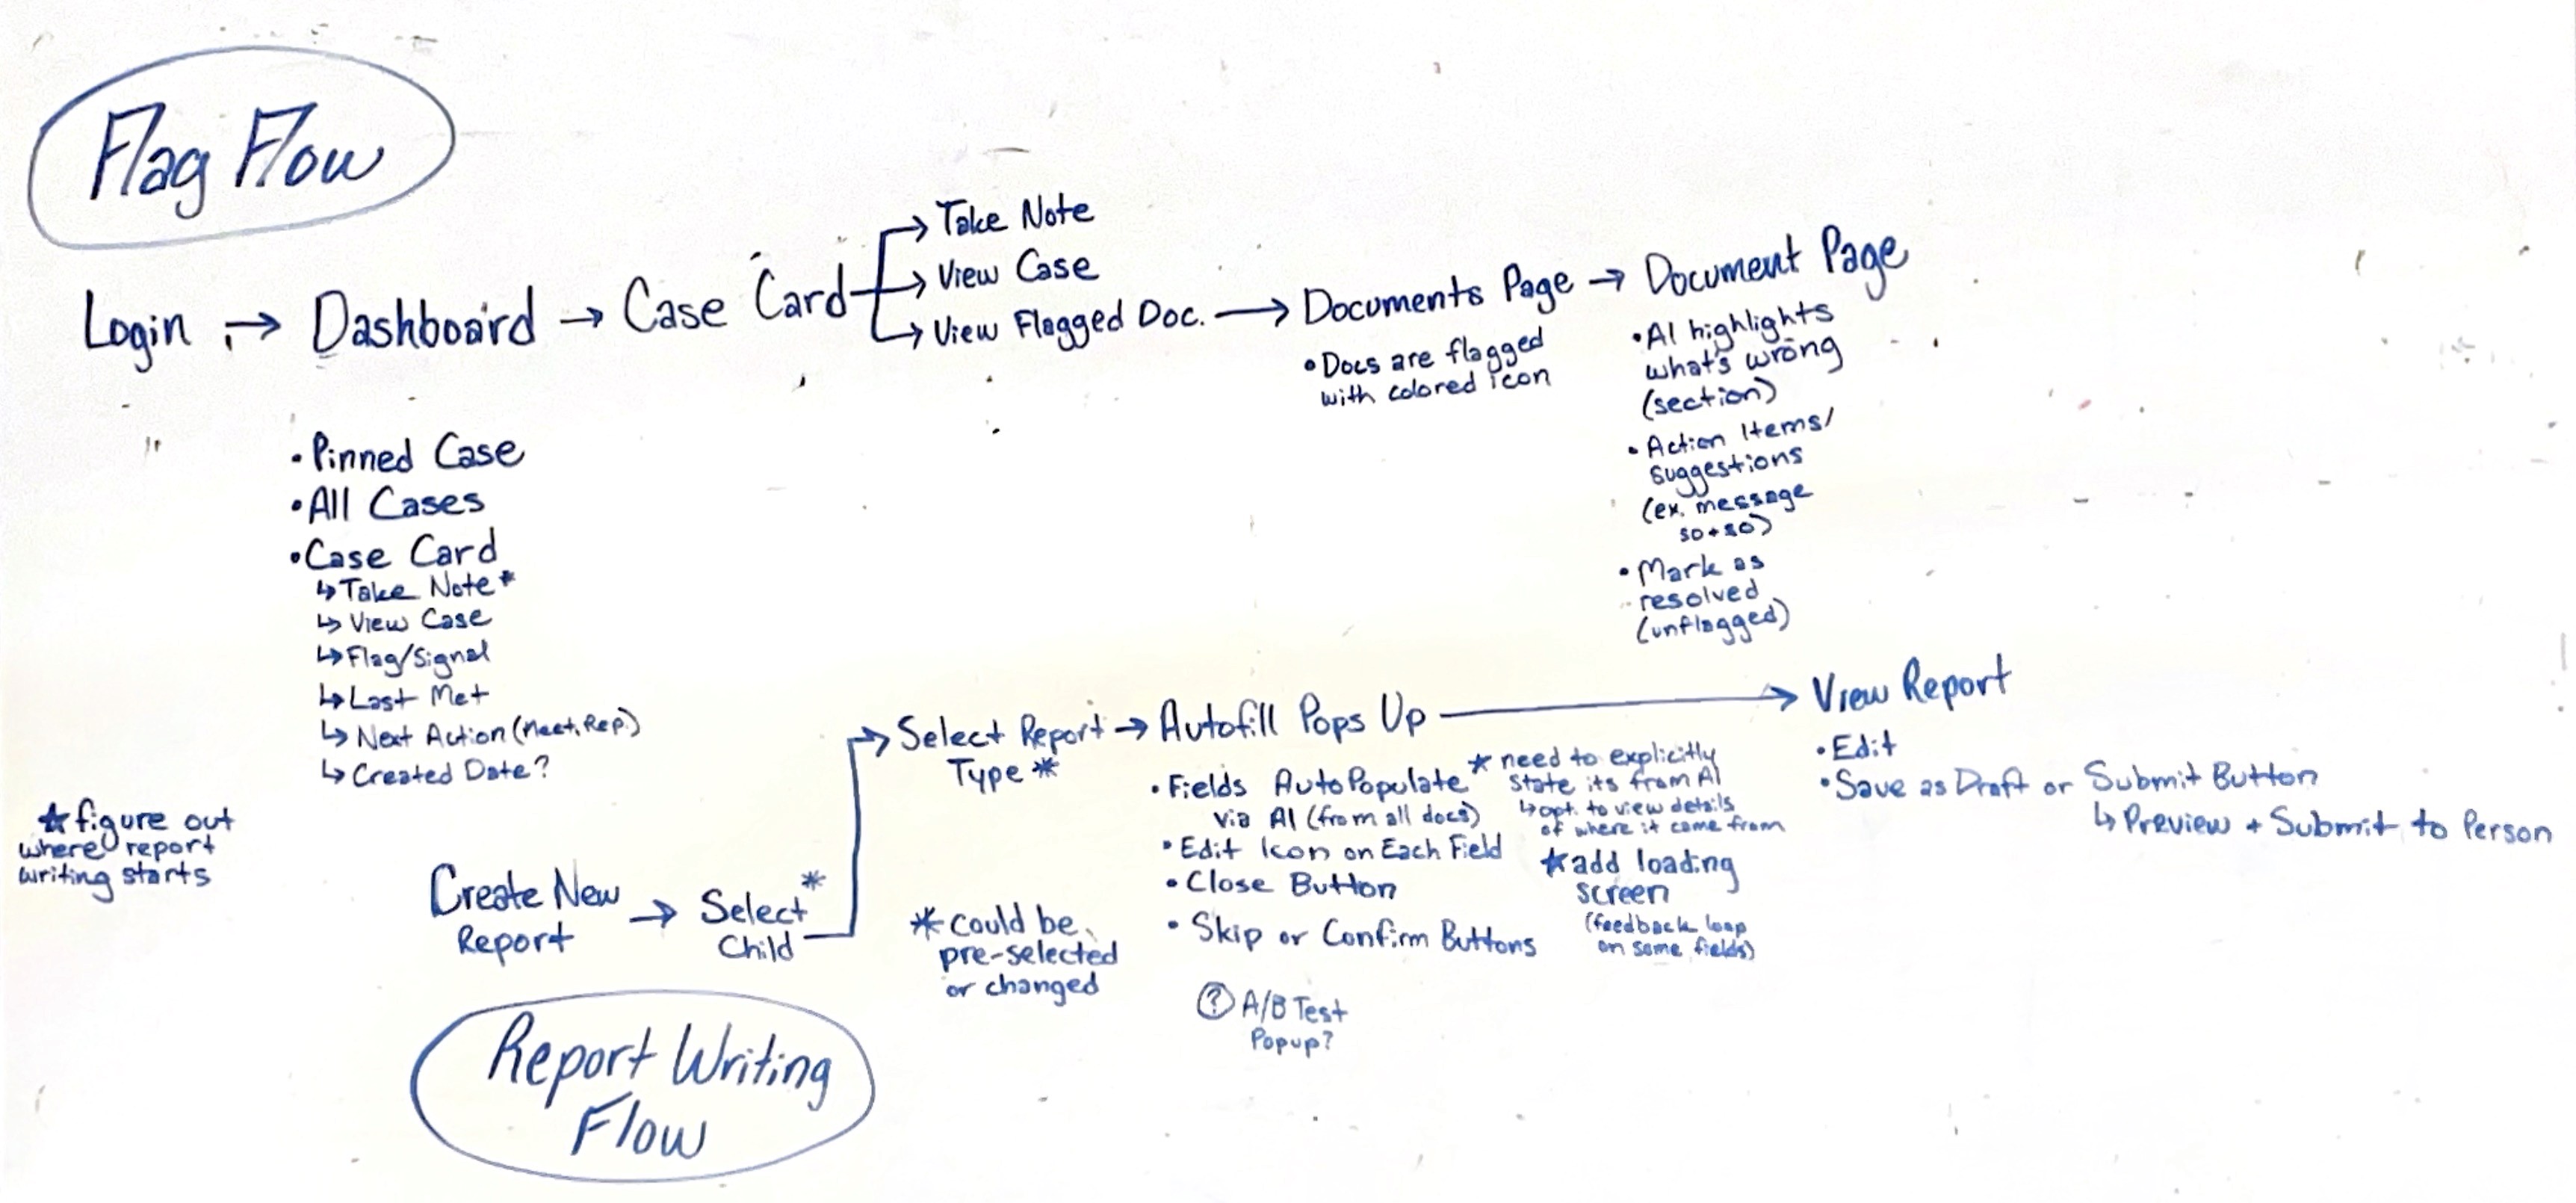 Flag Flow
Login → Dashboard → Case Card
→ Take Note
→ View Case
→ View Flagged Doc. → Documents Page → Document Page
• Docs are flagged
with colored icon
• AI highlights
what's wrong
(section)
• Action Items/
Suggestions
(ex. message
so + so)
• Mark as
resolved
(unflagged)
• Pinned Case
• All Cases
• Case Card
↳ Take Note*
↳ View Case
↳ Flag/Signal
↳ Last Met
↳ Next Action (Meet, Rep.)
↳ Created Date?
★ figure out
where report
writing starts
Create New
Report
→ Select *
Child
→ Select Report
Type *
→ Autofill Pops Up → View Report
* could be
pre-selected
or changed
• Fields AutoPopulate
via AI (from all docs)
• Edit Icon on Each Field
• Close Button
• Skip or Confirm Buttons
? A/B Test
Popup?
★ need to explicitly
state its from AI
↳ opt. to view details
of where it came from
★ add loading
screen
(feedback loop
on some fields)
• Edit
• Save as Draft or Submit Button
↳ Preview + Submit to Person
Report Writing
Flow